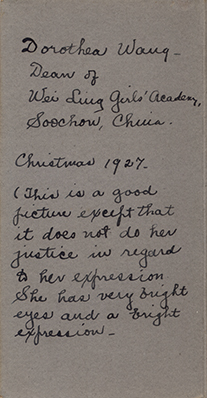 Dorothea Wang -
Dean of
Wei Ling Girls' Academy,
Soochow, China.
Christmas 1927.
(This is a good
picture except that
it does not do her
justice in regard
to her expression
She has very bright
eyes and a bright
expression -